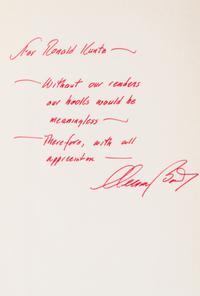 For Ronald Kuntz —
— Without our readers
our books would be
meaningless —
— Therefore, with all
appreciation —